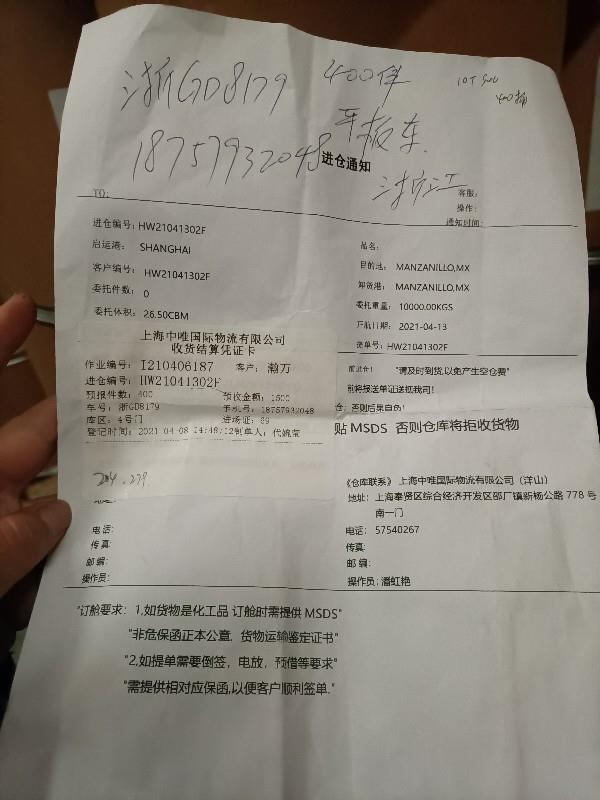 浙GD8179 400件 10T 500
400桶
18757932048 平板车
进仓通知 浙江
TO: 客服:
操作:
通知时间:
进仓编号: HW21041302F 品名:
启运港: SHANGHAI 目的地: MANZANILLO,MX
客户编号: HW21041302F 卸货港: MANZANILLO,MX
委托件数: 0 委托重量: 10000.00KGS
委托体积: 26.50CBM 开航日期: 2021-04-13
提单号: HW21041302F
上海中唯国际物流有限公司
收货结算凭证卡
作业编号: I210406187 客户: 瀚万
进仓编号: HW21041302F
预报件数: 400 预收金额: 1600
车号: 浙GD8179 手机号: 18757932048
库区: 4号门 进场证: 69
登记时间: 2021-04-08 14:48:12制单人: 代婉莹
前进仓! "请及时到货,以免产生空仓费"
前将报送单证送抵我司!
仓: 否则后果自负!
贴 MSDS 否则仓库将拒收货物
《仓库联系》 上海中唯国际物流有限公司 (洋山)
地址: 上海奉贤区综合经济开发区邵厂镇新杨公路 778 号
南一门
电话: 电话: 57540267
传真: 传真:
邮编: 邮编:
操作员: 操作员: 潘虹艳
"订舱要求: 1,如货物是化工品 订舱时需提供 MSDS"
"非危保函正本公章, 货物运输鉴定证书"
"2,如提单需要倒签, 电放, 预借等要求"
"需提供相对应保函,以便客户顺利签单."